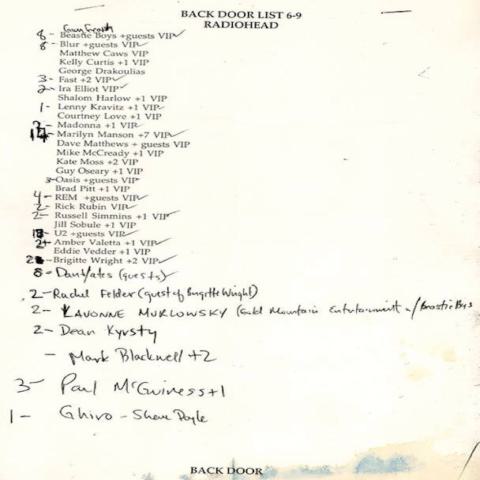 BACK DOOR LIST 6-9
RADIOHEAD
8- Beastie Boys +guests VIP✓
8- Blur +guests VIP✓
Matthew Caws VIP
Kelly Curtis +1 VIP
George Drakoulias
3- Fast +2 VIP✓
2- Ira Elliot VIP✓
Shalom Harlow +1 VIP
1- Lenny Kravitz +1 VIP✓
Courtney Love +1 VIP
2- Madonna +1 VIP
Marilyn Manson +7 VIP✓
Dave Matthews + guests VIP
Mike McCready +1 VIP
Kate Moss +2 VIP
Guy Oseary +1 VIP
3-Oasis +guests VIP
Brad Pitt +1 VIP
4- REM +guests VIP✓
2- Rick Rubin VIP✓
2- Russell Simmins +1 VIP✓
Jill Sobule +1 VIP
U2 +guests VIP✓
2- Amber Valetta +1 VIP✓
Eddie Vedder +1 VIP
Brigitte Wright +2 VIP✓
8- (guests)
2- Rachel Felder (guest of Brigitte Wright)
2- LAVONNE MURLOWSKY (Gold Mountain Entertainment w/ Beastie Boys
2- Dean Kyrsty
- Mark Blackwell +2
3- Paul McGuiness +1
1- Ghiro - Shane Doyle
BACK DOOR